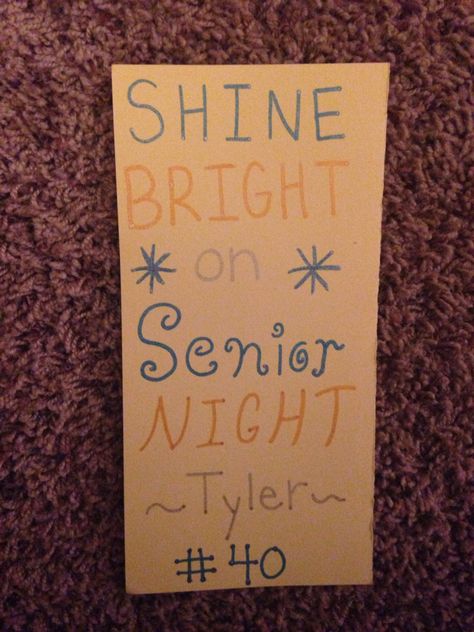 SHINE
BRIGHT
* on *
Senior
NIGHT
~Tyler~
#40